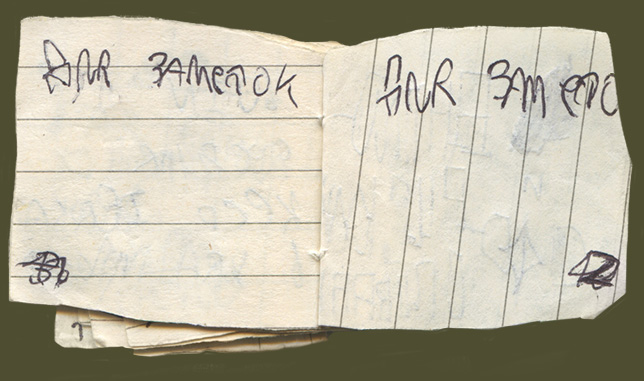 ДЛЯ ЗАМЕТОК
ДЛЯ ЗАМЕТО